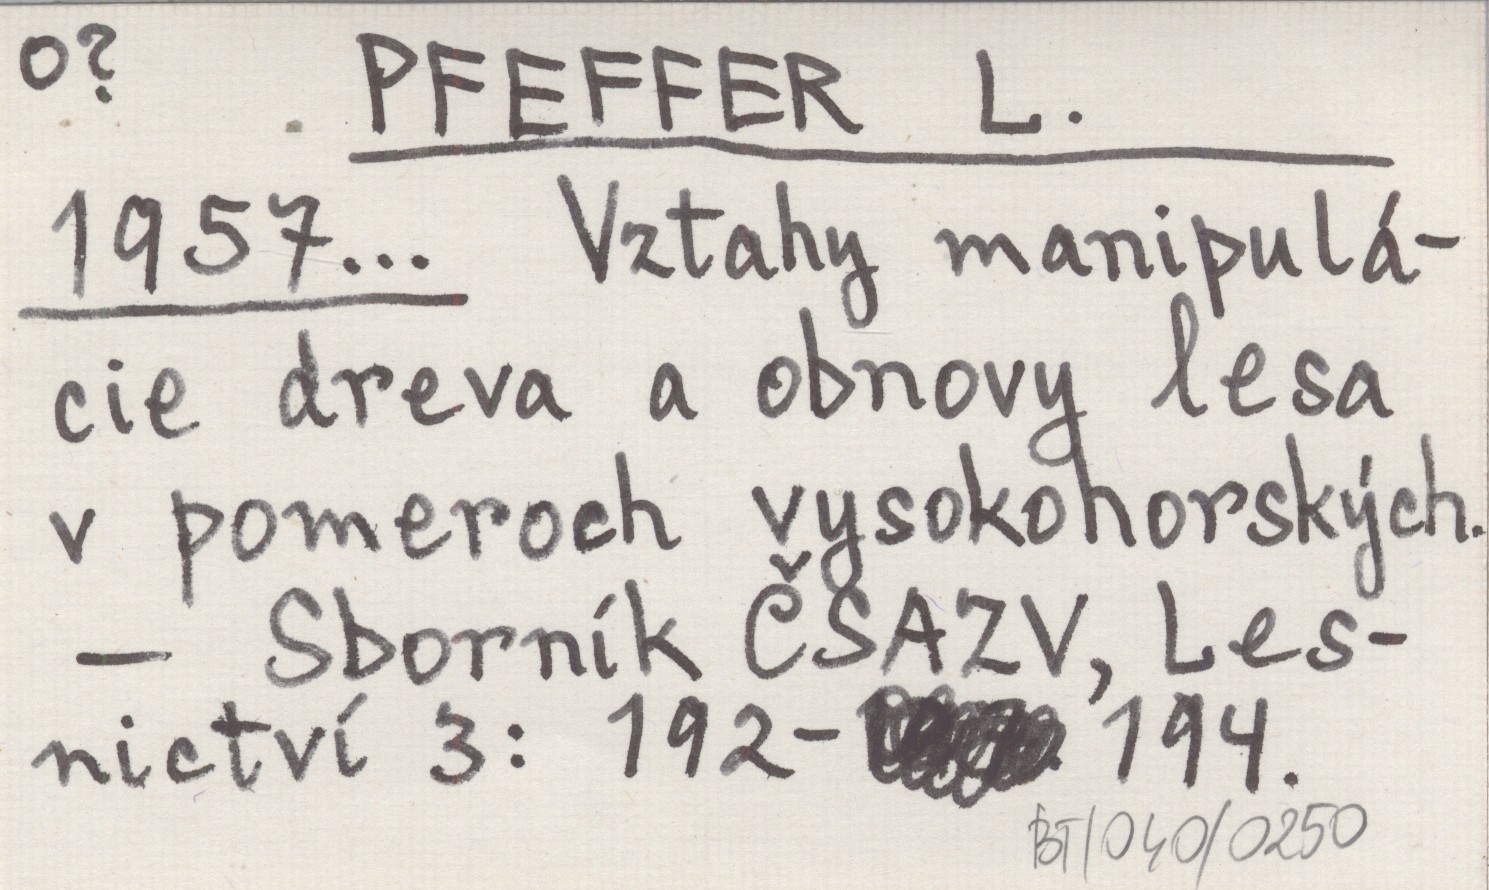 o? PFEFFER L.
1957... Vztahy manipulá-
cie dreva a obnovy lesa
v pomeroch vysokohorských.
— Sborník ČSAZV, Les-
nictví 3: 192- 194.
BT/040/0250